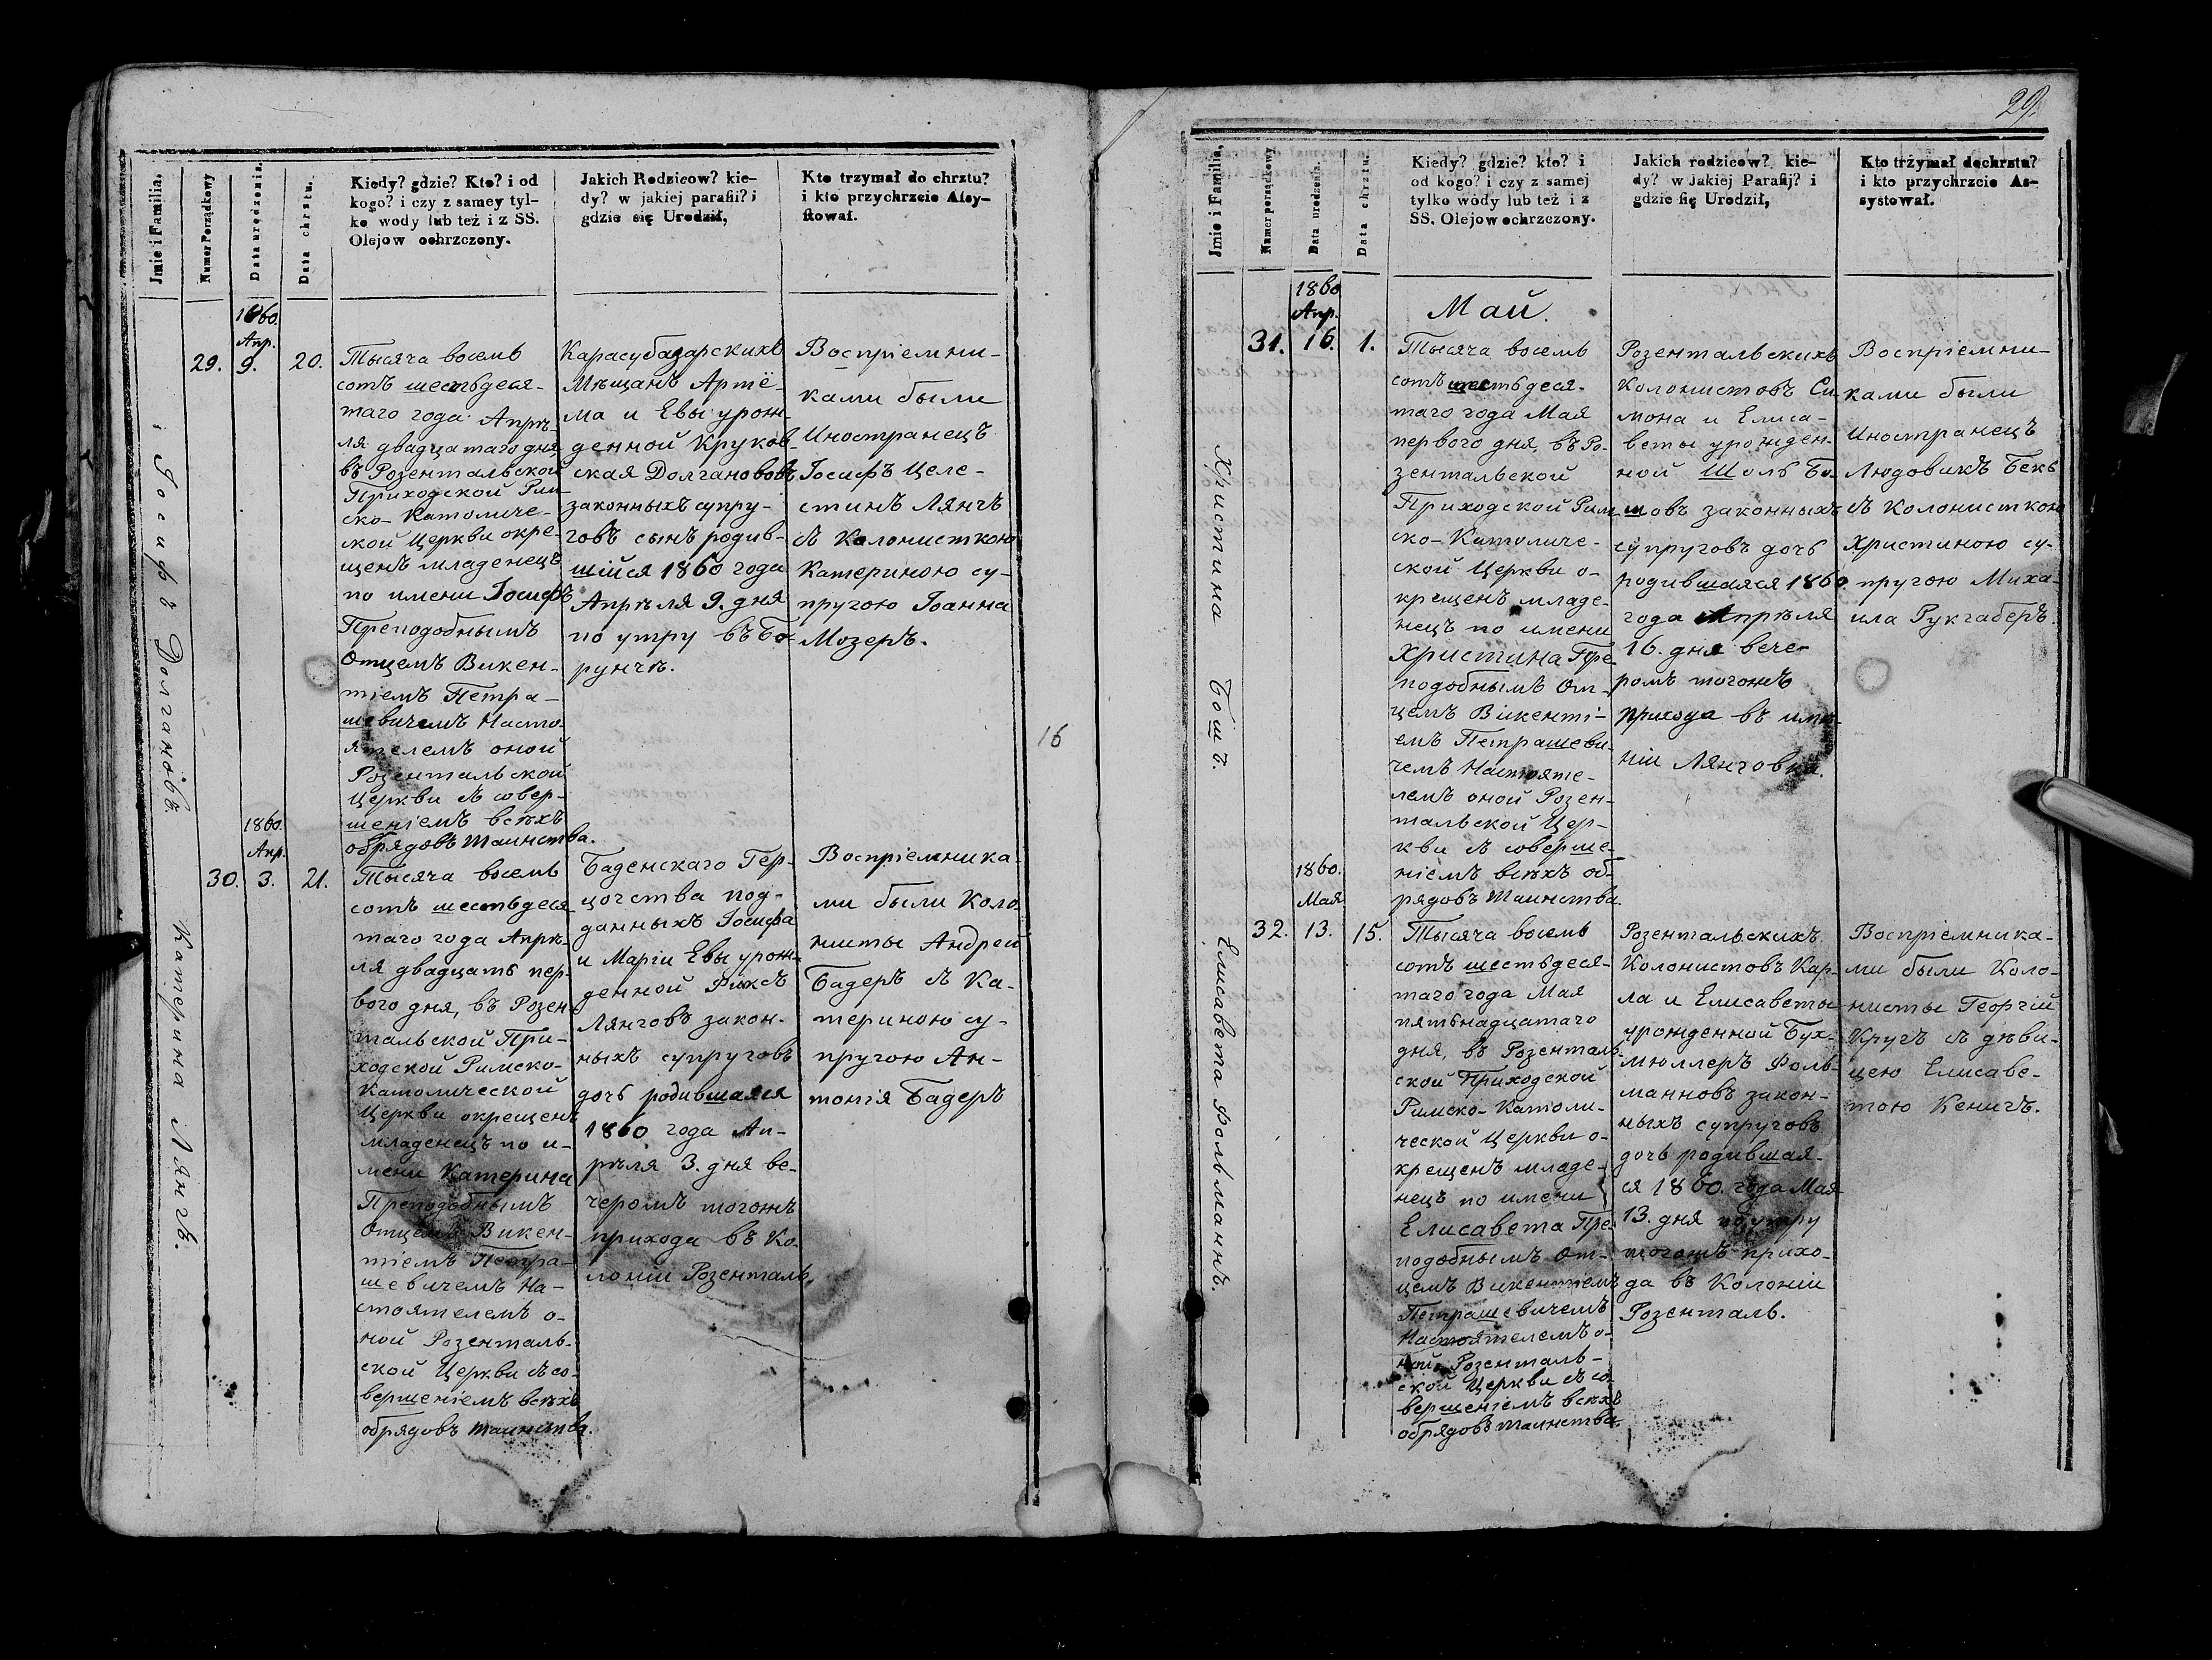 Jmie i Familia.
Numer Porządkowy
Data urodzenia.
Data chrztu.
Kiedy? gdzie? Kto? i od
kogo? i czy z samey tyl-
ko wody lub też i z SS.
Olejow ochrzczony.
Jakich Rodzicow? kie-
dy? w jakiej parafii? i
gdzie się Urodził,
Kto trzymał do chrztu?
i kto przychrzcie Assy-
stował.
Іосифъ Долгановъ.
1860.
Апр.
29. 9. 20.
Тысяча восемь
сотъ шестьдеся-
таго года Апрѣ-
ля двадцатаго дня
въ Розентальской
Приходской Рим-
ско-Католиче-
ской Церкви окре-
щенъ младенецъ
по имени Іосифъ
Преподобнымъ
Отцемъ Викен-
тіемъ Петра-
шевичемъ Насто-
ятелемъ оной
Розентальской
Церкви съ совер-
шеніемъ всѣхъ
обрядовъ таинства.
Карасубазарскихъ
Мѣщанъ Артё-
ма и Евы урож-
денной Круков-
ская Долганововъ
законныхъ супру-
говъ сынъ родив-
шійся 1860 года
Апрѣля 9. дня
по утру въ Бо-
рунчѣ.
Воспріемни-
ками были
Иностранецъ
Іосифъ Целе-
стинъ Лянгъ
съ Колонисткою
Катериною су-
пругою Іоанна
Мозеръ.
Катерина Лянгъ.
1860.
Апр.
30. 3. 21.
Тысяча восемь
сотъ шестьдеся-
таго года Апрѣ-
ля двадцать пер-
вого дня, въ Розен-
тальской При-
ходской Римско-
Католической
Церкви окрещенъ
младенецъ по и-
мени Катерина
Преподобнымъ
Отцемъ Викен-
тіемъ Петра-
шевичемъ На-
стоятелемъ о-
ной Розенталь-
ской Церкви съ со-
вершеніемъ всѣхъ
обрядовъ таинства.
Баденскаго Гер-
цогства под-
данныхъ Іосифа
и Маріи Евы урож-
денной Фиксъ
Лянговъ закон-
ныхъ супруговъ
дочь родившаяся
1860. года Ап-
рѣля 3. дня ве-
черомъ тогожъ
прихода въ Ко-
лоніи Розенталь.
Воспріемника-
ми были Коло-
нисты Андрей
Бадеръ съ Ка-
териною су-
пругою Ан-
тонія Бадеръ
16
29.
Jmie i Familia,
Numer porządkowy
Data urodzenia.
Data chrztu.
Kiedy? gdzie? kto? i
od kogo? i czy z samej
tylko wody lub też i z
SS. Olejow ochrzczony.
Jakich rodzicow? kie-
dy? w Jakiej Parafij? i
gdzie się Urodził,
Kto trzymał dochrztu?
i kto przychrzcie As-
systował.
Христина Бошъ.
1860
Апр.
31. 16. 1.
Май.
Тысяча восемь
сотъ шестьдеся-
таго года Мая
первого дня, въ Ро-
зентальской
Приходской Рим-
ско-Католиче-
ской Церкви о-
крещенъ младе-
нецъ по имени
Христина Пре-
подобнымъ От-
цемъ Викенті-
емъ Петрашеви-
чемъ Настояте-
лемъ оной Розен-
тальской Цер-
кви съ соверше-
ніемъ всѣхъ об-
рядовъ таинства.
Розентальскихъ
Колонистовъ Си-
мона и Елиса-
веты урожден-
ной Шоль Бо-
шовъ законныхъ
супруговъ дочь
родившаяся 1860.
года Апрѣля
16. дня вече-
ромъ тогожъ
прихода въ имѣ-
ніи Лянговка.
Воспріемни-
ками были
Иностранецъ
Людовикъ Бекъ
съ Колонисткою
Христиною су-
пругою Миха-
ила Рукгаберъ.
Елисавета Фольманнъ.
1860.
Мая
32. 13. 15.
Тысяча восемь
сотъ шестьдеся-
таго года Мая
пятьнадцатаго
дня, въ Розенталь-
ской Приходской
Римско-Католи-
ческой Церкви о-
крещенъ младе-
нецъ по имени
Елисавета Пре-
подобнымъ От-
цемъ Викентіемъ
Петрашевичемъ
Настоятелемъ о-
ной Розенталь-
ской Церкви съ со-
вершеніемъ всѣхъ
обрядовъ таинства.
Розентальскихъ
Колонистовъ Кар-
ла и Елисаветы
урожденной Бух-
мюллеръ Фоль-
манновъ закон-
ныхъ супруговъ
дочь родившая-
ся 1860. года Мая
13. дня по утру
тогожъ прихо-
да въ Колоніи
Розенталь.
Воспріемника-
ми были Коло-
нисты Георгій
Кругъ съ дѣви-
цею Елисаве-
тою Кенигъ.